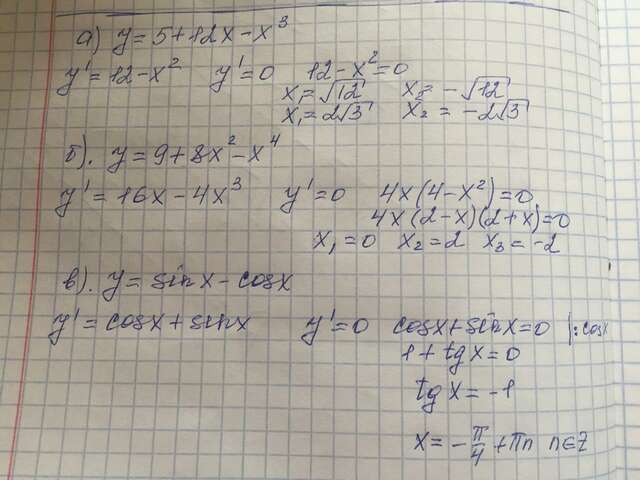 а) y = 5 + 12x - x³
y' = 12 - x² y' = 0 12 - x² = 0
x₁ = √12 x₂ = -√12
x₁ = 2√3 x₂ = -2√3
б). y = 9 + 8x² - x⁴
y' = 16x - 4x³ y' = 0 4x(4 - x²) = 0
4x(2 - x)(2 + x) = 0
x₁ = 0 x₂ = 2 x₃ = -2
в). y = sinx - cosx
y' = cosx + sinx y' = 0 cosx + sinx = 0 |: cosx
1 + tgx = 0
tgx = -1
x = -π/4 + πn n∈Z